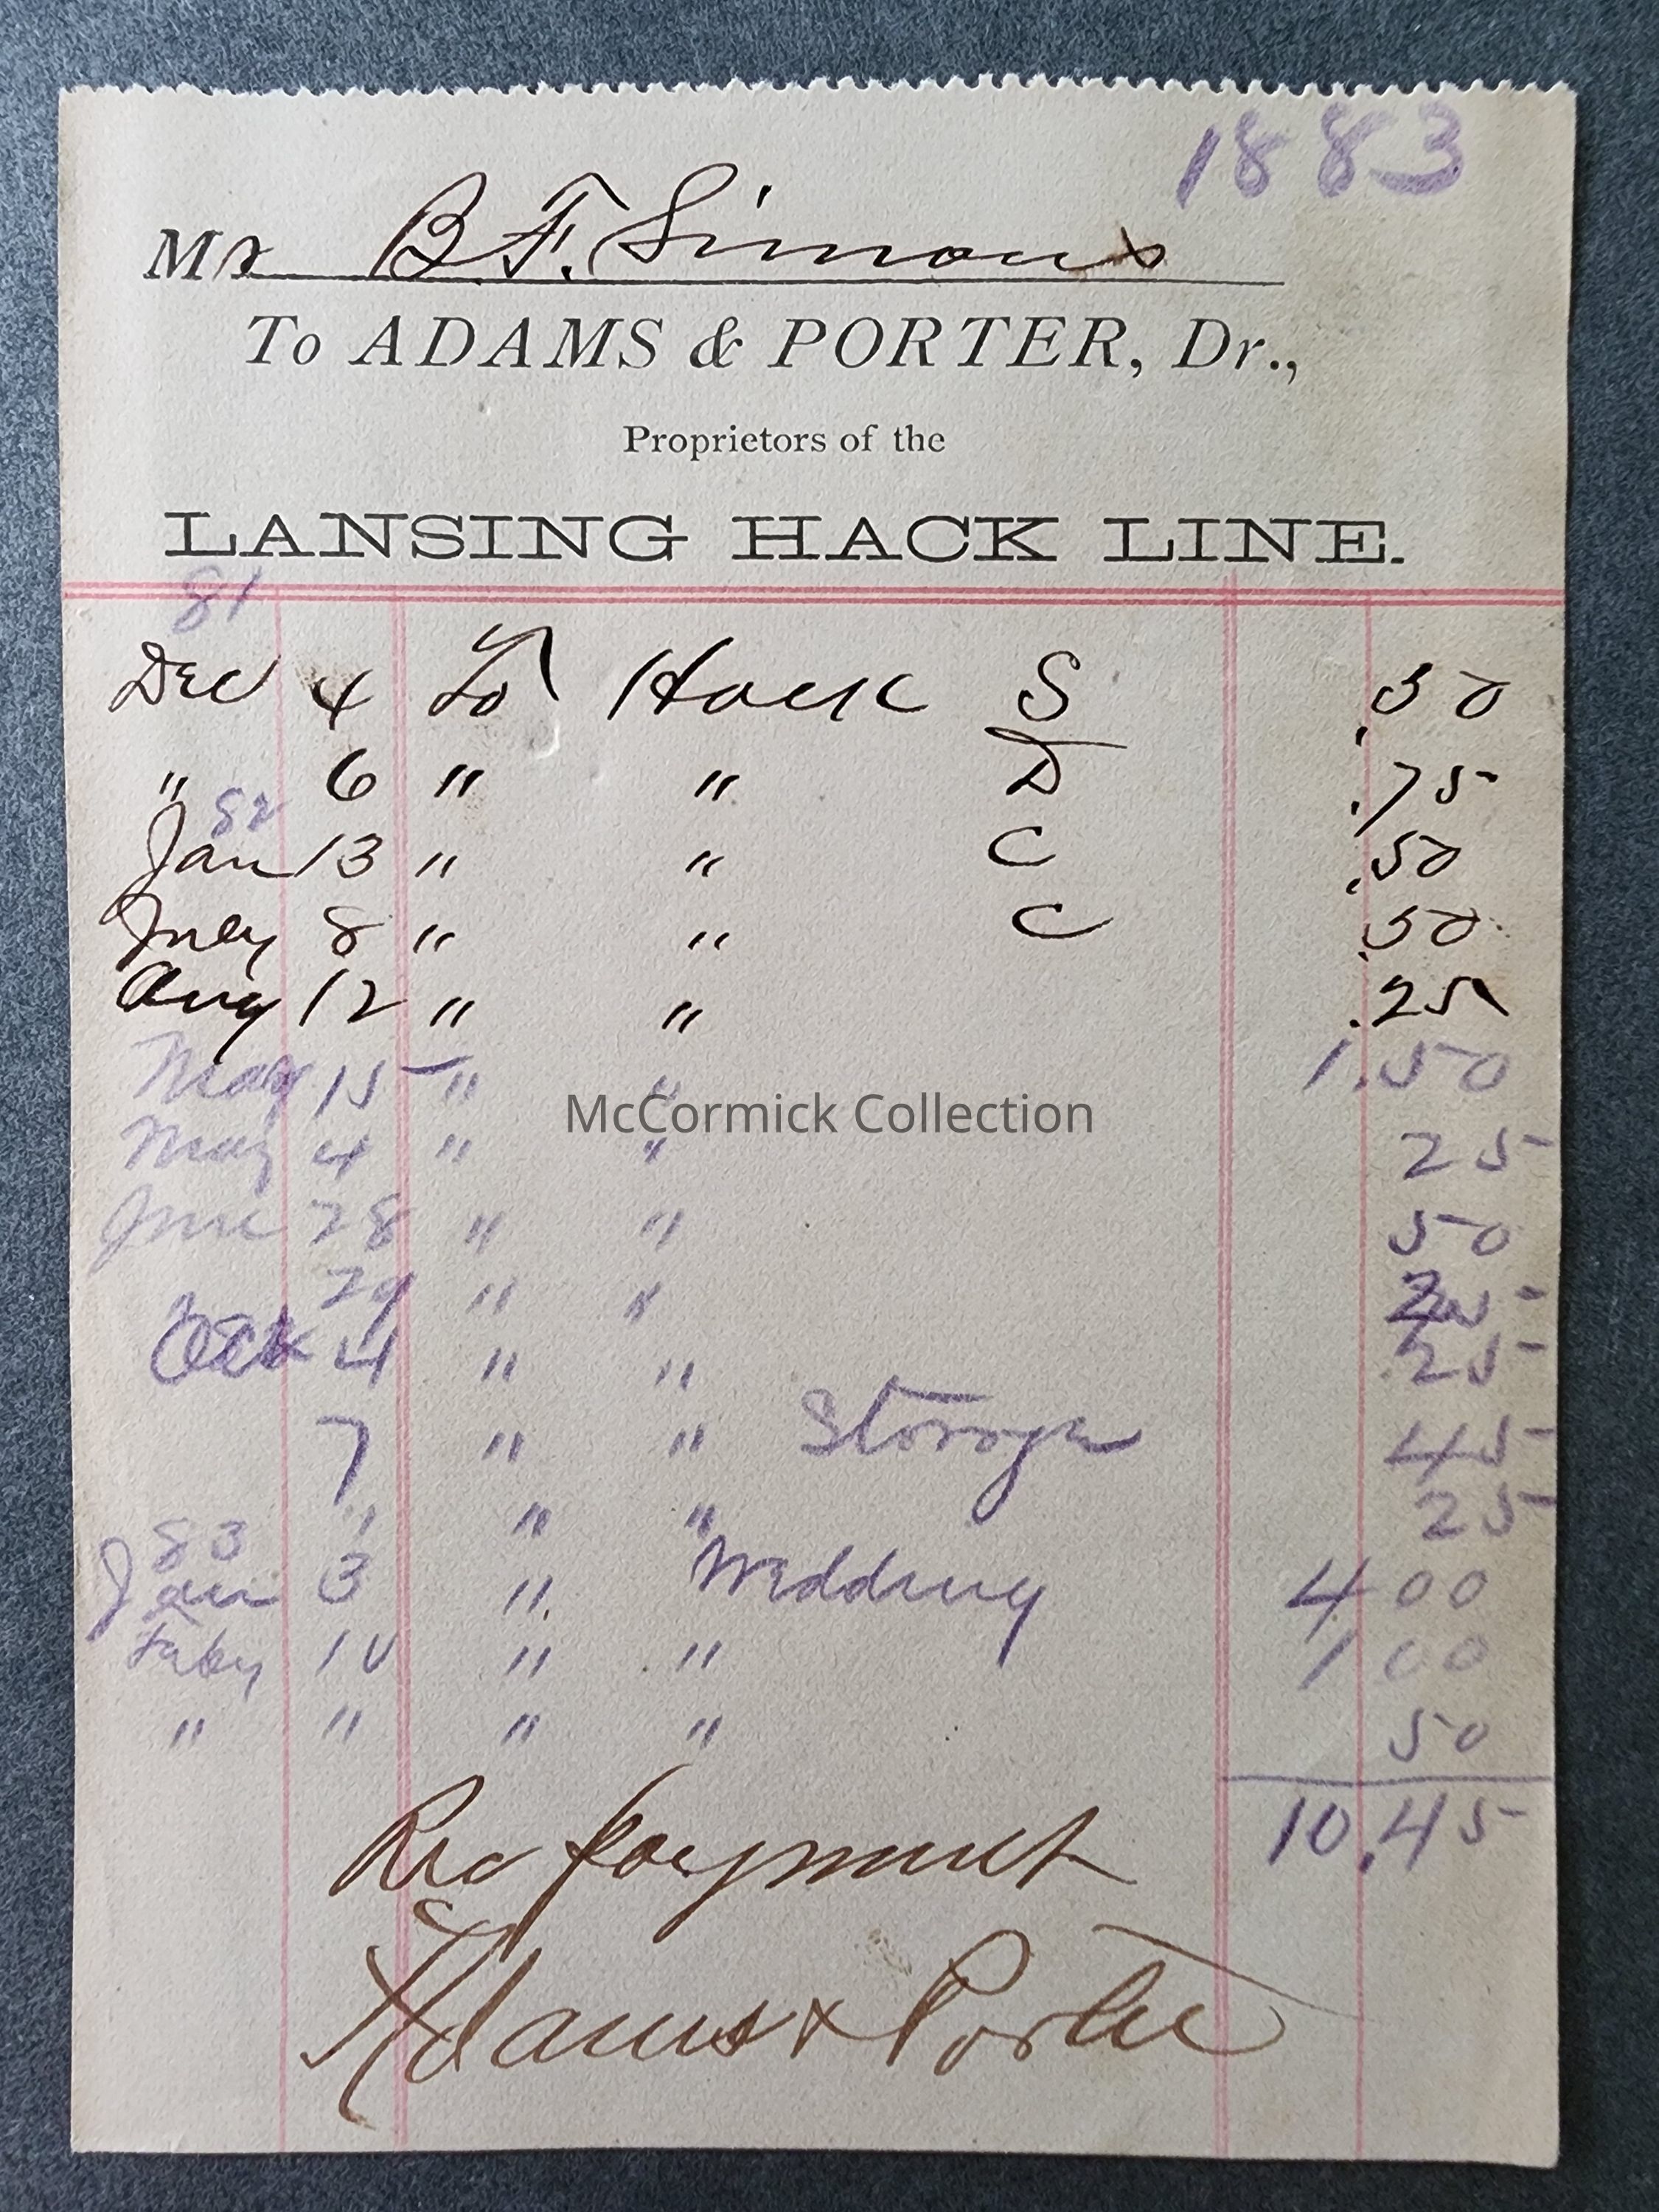 1883
Mr B. F. Simons
To ADAMS & PORTER, Dr.,
Proprietors of the
LANSING HACK LINE.
81
Dec 4 To Hack S .50
" 6 " " D .75
82
Jan 13 " " C .50
July 8 " " C .50
Aug 12 " " .25
May 15 " " 1.50
McCormick Collection
May 4 " " 25
June 28 " " 50
29 " " 25
Oct 4 " " 25
7 " " Storage 45
" " " 25
83
Jan 3 " Wedding 4 00
Feby 10 " " 1 00
" " " " 50
10.45
Rec payment
Adams & Porter